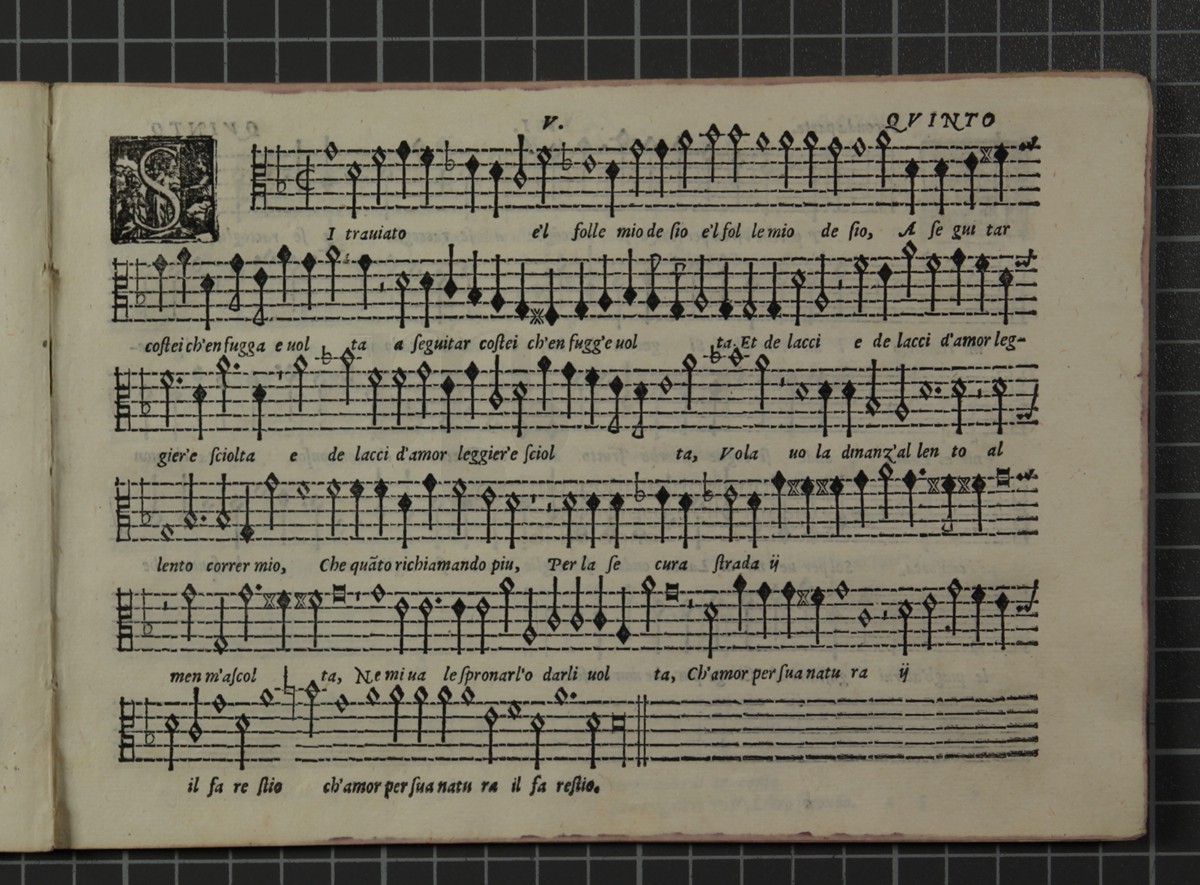 V. QVINTO
S
I trauiato e'l folle mio de sio e'l fol le mio de sio, A se gui tar
costei ch'en fugga e uol ta a seguitar costei ch'en fugg'e uol ta. Et de lacci e de lacci d'amor leg-
gier'e sciolta e de lacci d'amor leggier'e sciol ta, Vola uo la dinanz'al len to al
lento correr mio, Che quãto richiamando piu, Per la se cura strada ij
men m'ascol ta, Ne mi ua le spronarl'o darli uol ta, Ch'amor per sua natu ra ij
il fa re stio ch'amor per sua natu ra il fa restio.